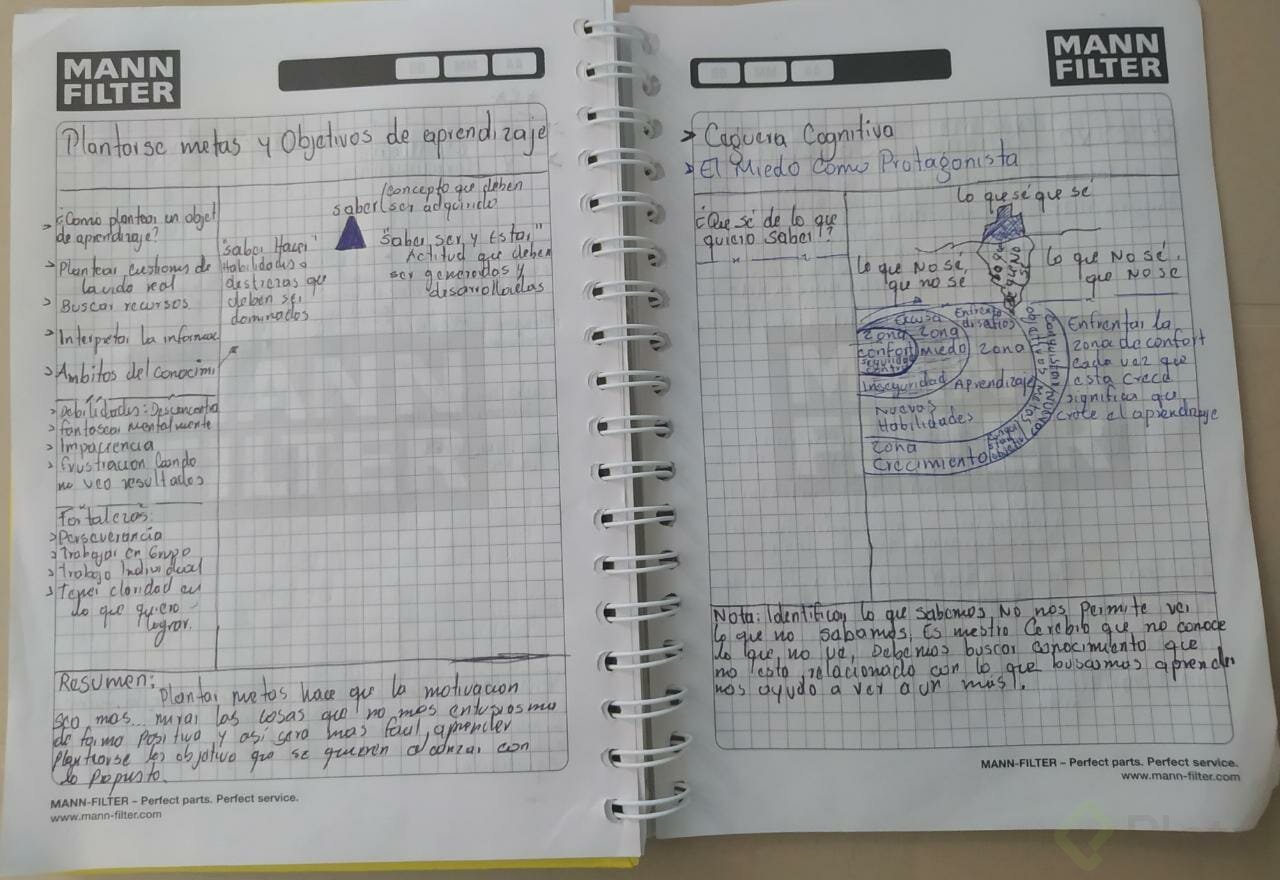 MANN
FILTER
DD MM AA
Plantarse metas y Objetivos de aprendizaje
> ¿Como plantear un objet
de aprendizaje?
> Plantear cuestiones de
la vida real
> Buscar recursos
> Interpretar la informac
> Ambitos del conocimi
> Debilidades:
> fantasear mentalmente
> Impaciencia
> frustracion Cuando
no veo resultados
Fortalezas:
> Perseverancia
> Trabajar en Grupo
> Trabajo Individual
> Tener claridad en
lo que quiero
lograr.
(concepto que deben
saber (ser adquirido
"Saber Hacer"
Habilidades o
destrezas que
deben ser
dominados
"Saber, ser y Estar"
Actitud que deben
ser generadas y
desarrolladas
Resumen:
Plantar metas hace que la motivacion
sea mas... mirar las cosas que no nos
de forma Positiva y asi sera mas facil, aprender
los objetivo que se quieren alcanzar con
lo Propusto.
MANN-FILTER – Perfect parts. Perfect service.
www.mann-filter.com
DD MM AA
MANN
FILTER
> Ceguera Cognitiva
> El Miedo Como Protagonista
¿Que sé de lo que
quiero saber!?
lo que sé que sé
lo que NO sé,
que no se
lo que NO sé,
que NO se
Excusa
Enfrenta
desafios
Zona
confort
seguridad
control
Zona
miedo
Inseguridad
Zona
Aprendizaje
Nuevos
Habilidades
Zona
Crecimiento
Conquistar Nuevos
objetivos Metas
Enfrentar la
zona de confort
cada vez que
esta crece
significa que
crece el aprendizaje
Nota: Identificar lo que sabemos, No nos Permite ver
lo que no sabamos, Es nuestro Cerebro que no conoce
lo que no ve, Debemos buscar conocimiento que
no esta relacionado con lo que buscamos aprender
nos ayuda a ver a un más!.
MANN-FILTER – Perfect parts. Perfect service.
www.mann-filter.com